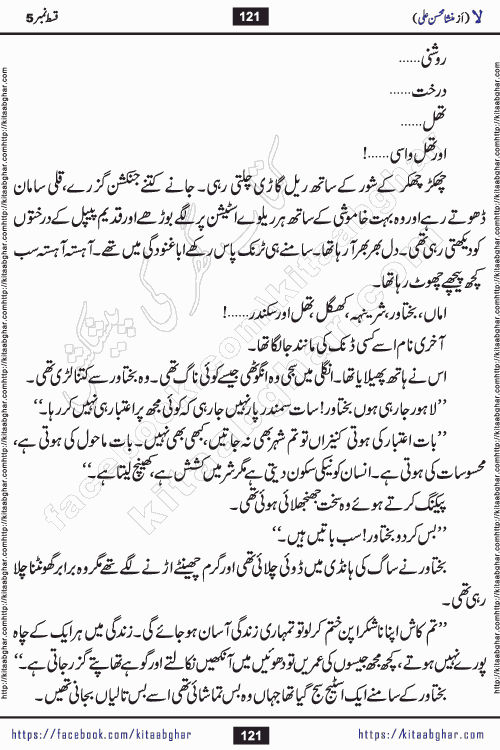 لا (از منشا محسن علی) 121 قسط نمبر 5
روشنی......
درخت......
تھل......
اور تھل واسی......!
چھکڑ چھکر کے شور کے ساتھ ریل گاڑی چلتی رہی۔ جانے کتنے جنکشن گزرے، قلی سامان
ڈھوتے رہے اور وہ بہت خاموشی کے ساتھ ہر ریلوے اسٹیشن پر لگے بوڑھے اور قدیم پیپل کے درختوں
کو دیکھتی رہی تھی۔ دل بھر بھر آ رہا تھا۔ سامنے ہی ٹرنک پاس رکھے ابا غنودگی میں تھے۔ آہستہ آہستہ سب
کچھ پیچھے چھوٹ رہا تھا۔
اماں، بختاور، شرینہہ، کھگل، تھل اور سکندر......!
آخری نام اسے کسی ڈنک کی مانند جا لگا تھا۔
اس نے ہاتھ پھیلایا تھا۔ انگلی میں سجی وہ انگوٹھی جیسے کوئی ناگ تھی۔ وہ بختاور سے کتنا لڑی تھی۔
’’لاہور جا رہی ہوں بختاور! سات سمندر پار نہیں جا رہی کہ کوئی مجھ پر اعتبار ہی نہیں کر رہا۔‘‘
’’بات اعتبار کی ہوتی کنیزاں تو تم شہر بھی نہ جاتیں، کبھی بھی نہیں۔ بات ماحول کی ہوتی ہے،
محسوسات کی ہوتی ہے۔ انسان کو نیکی سکون دیتی ہے مگر شر میں کشش ہے، کھینچ لیتا ہے۔‘‘
پیکنگ کرتے ہوئے وہ سخت جھنجھلائی ہوئی تھی۔
’’بس کر دو بختاور! سب باتیں ہیں۔‘‘
بختاور نے ساگ کی ہانڈی میں ڈوئی چلائی تھی اور گرم چھینٹے اڑنے لگے تھے مگر وہ برابر گھوٹنا چلا
رہی تھی۔
’’تم کاش اپنا ناشکرا پن ختم کر لو تو تمہاری زندگی آسان ہو جائے گی۔ زندگی میں ہر ایک کے چاہ
پورے نہیں ہوتے، کچھ مجھ جیسوں کی عمریں تو دھوئیں میں آنکھیں نکالتے اور گوہے تھاپتے گزر جاتی ہے۔‘‘
بختاور کے سامنے ایک اسٹیج سج گیا تھا جہاں وہ بس تماشائی تھی اسے بس تالیاں بجانی تھیں۔
https://facebook.com/kitaabghar 121 https://kitaabghar.com